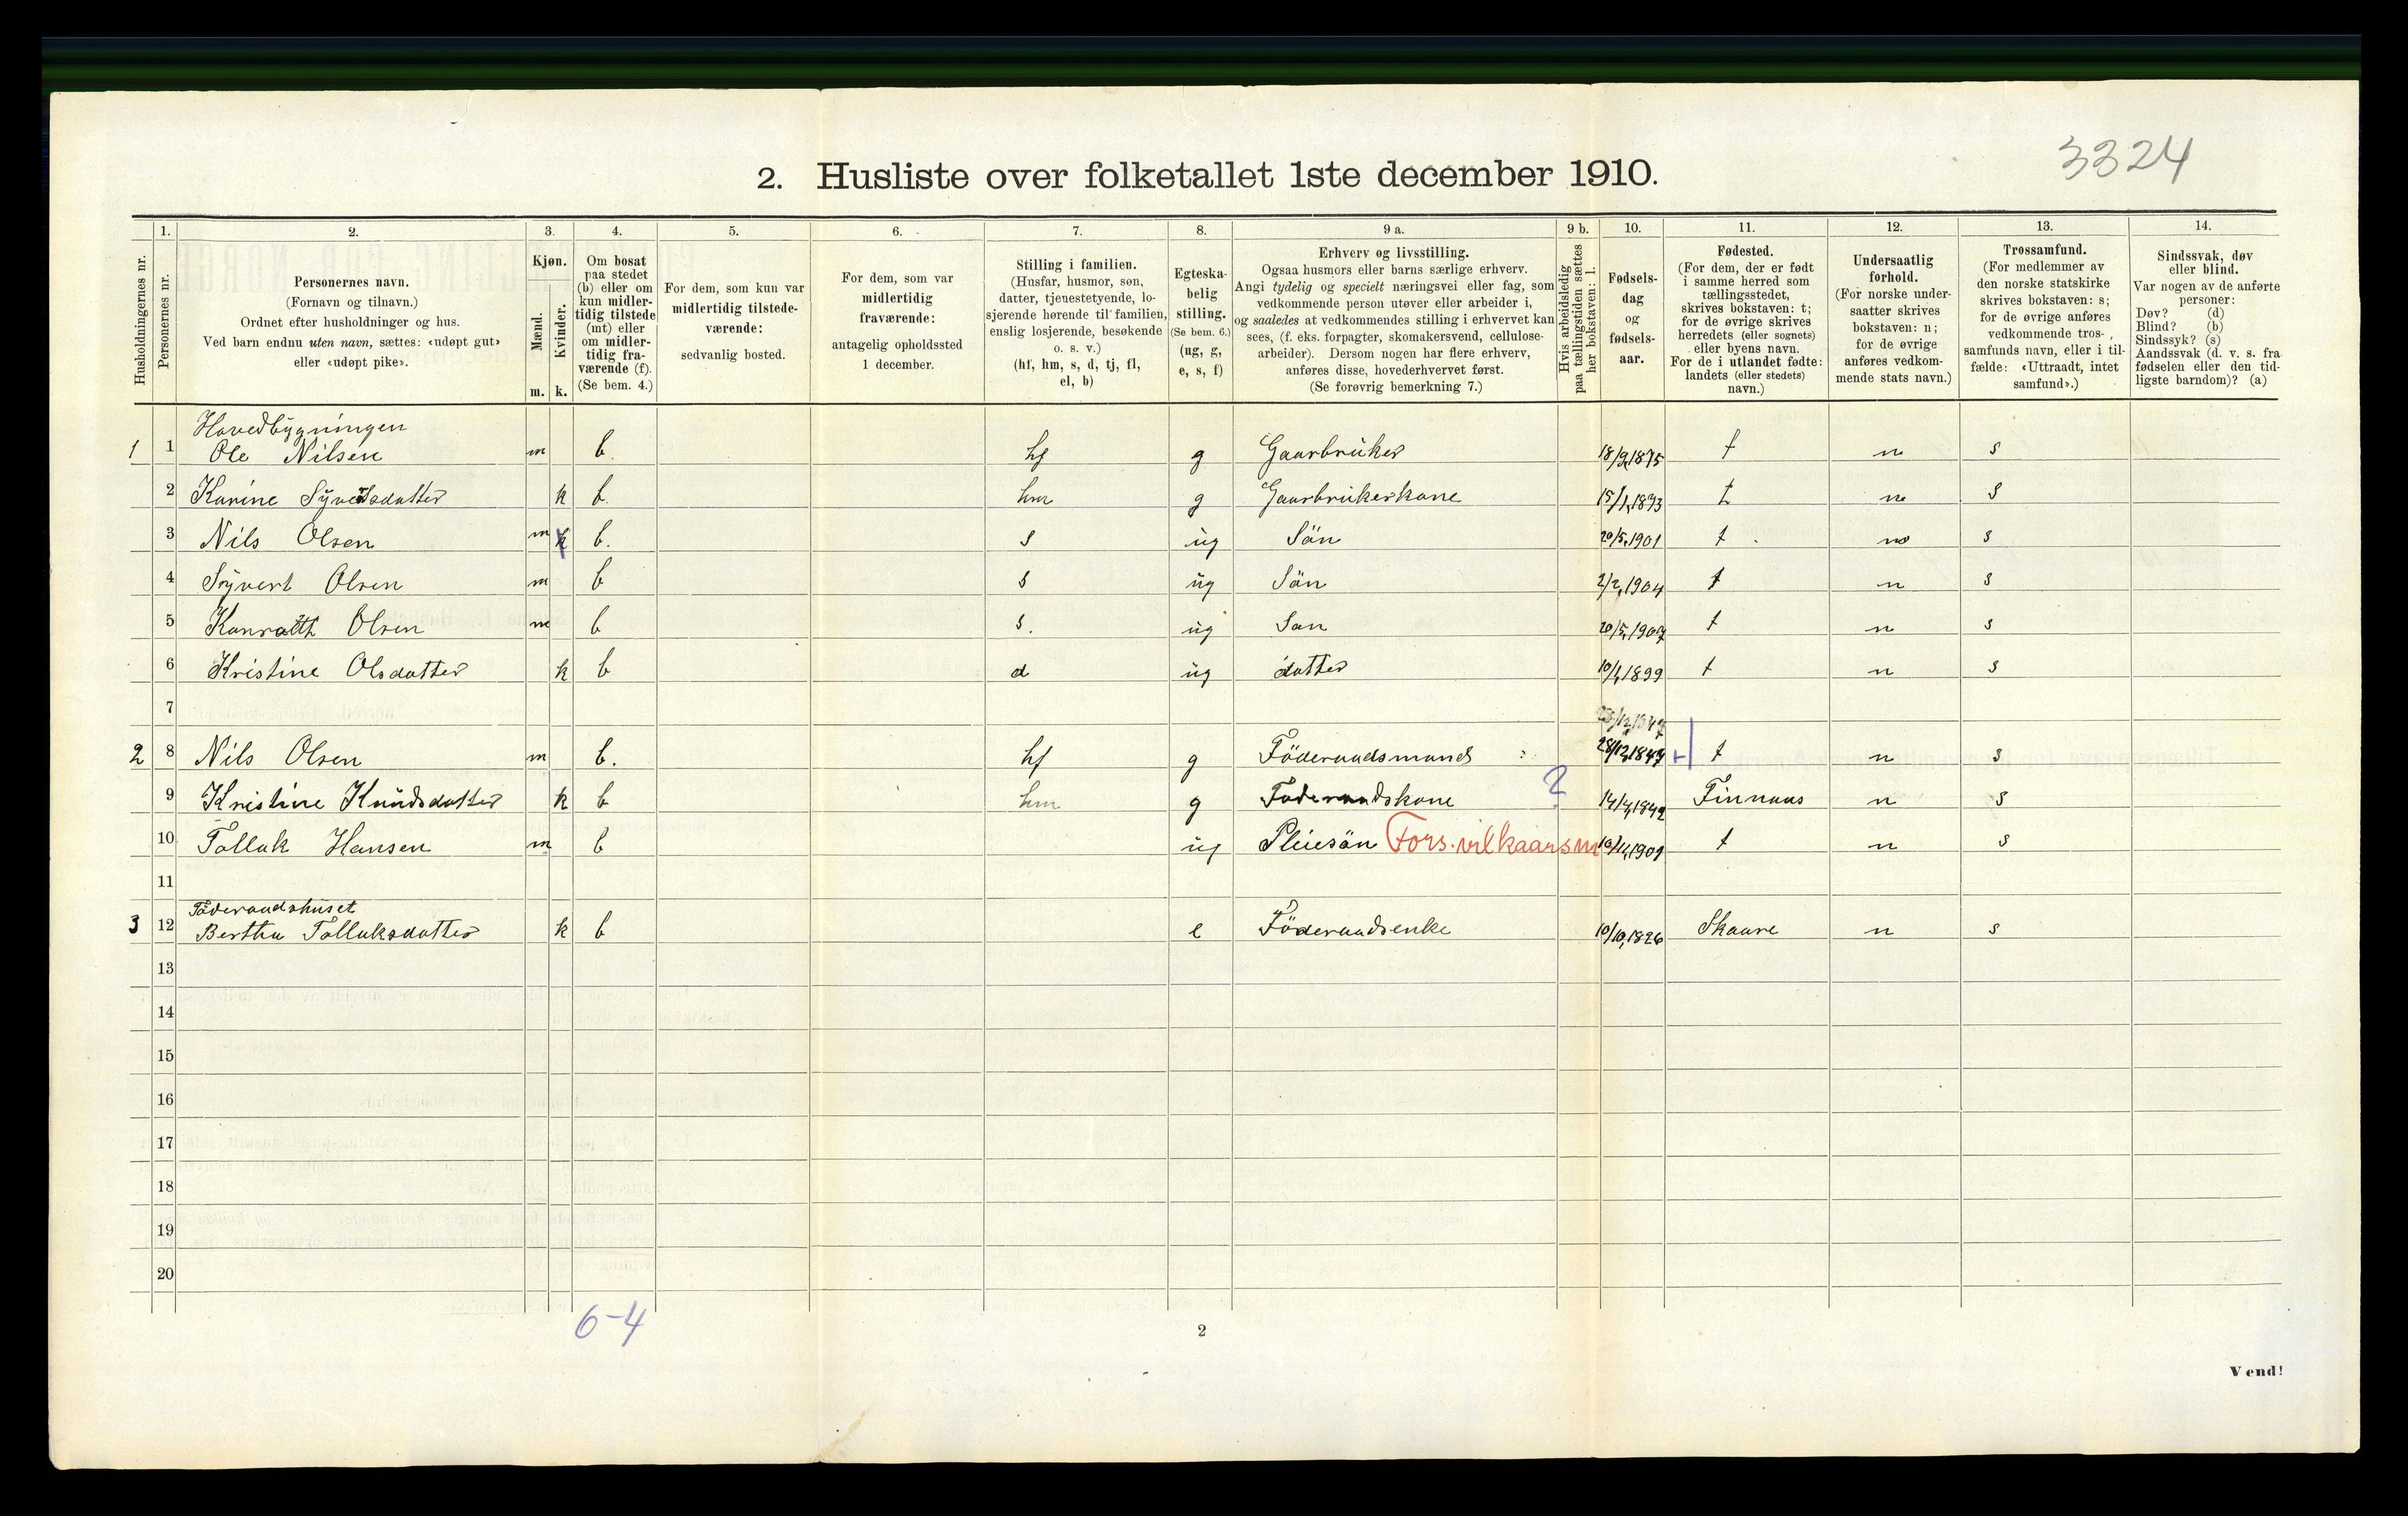 3324
2. Husliste over folketallet 1ste december 1910.
Husholdningernes nr.
1. 2. 3. 4. 5. 6. 7. 8. 9 a. 9 b. 10. 11. 12. 13. 14.
Personernes nr.
Personernes navn.
(Fornavn og tilnavn.)
Ordnet efter husholdninger og hus.
Ved barn endnu uten navn, sættes: «udøpt gut»
eller «udøpt pike».
Kjøn.
Mænd.
Kvinder.
m. k.
Om bosat
paa stedet
(b) eller om
kun midler-
tidig tilstede
(mt) eller
om midler-
tidig fra-
værende (f).
(Se bem. 4.)
For dem, som kun var
midlertidig tilstede-
værende:
sedvanlig bosted.
For dem, som var
midlertidig
fraværende:
antagelig opholdssted
1 december.
Stilling i familien.
(Husfar, husmor, søn,
datter, tjenestetyende, lo-
sjerende hørende til familien,
enslig losjerende, besøkende
o. s. v.)
(hf, hm, s, d, tj, fl,
el, b)
Egteska-
belig
stilling.
(Se bem. 6.)
(ug, g,
e, s, f)
Erhverv og livsstilling.
Ogsaa husmors eller barns særlige erhverv.
Angi tydelig og specielt næringsvei eller fag, som
vedkommende person utøver eller arbeider i,
og saaledes at vedkommendes stilling i erhvervet kan
sees, (f. eks. forpagter, skomakersvend, cellulose-
arbeider). Dersom nogen har flere erhverv,
anføres disse, hovederhvervet først.
(Se forøvrig bemerkning 7.)
Hvis arbeidsledig
paa tællingstiden sættes
her bokstaven: l.
Fødsels-
dag
og
fødsels-
aar.
Fødested.
(For dem, der er født
i samme herred som
tællingsstedet,
skrives bokstaven: t;
for de øvrige skrives
herredets (eller sognets)
eller byens navn.
For de i utlandet fødte:
landets (eller stedets)
navn.)
Undersaatlig
forhold.
(For norske under-
saatter skrives
bokstaven: n;
for de øvrige
anføres vedkom-
mende stats navn.)
Trossamfund.
(For medlemmer av
den norske statskirke
skrives bokstaven: s;
for de øvrige anføres
vedkommende tros-
samfunds navn, eller i til-
fælde: «Uttraadt, intet
samfund».)
Sindssvak, døv
eller blind.
Var nogen av de anførte
personer:
Døv? (d)
Blind? (b)
Sindssyk? (s)
Aandssvak (d. v. s. fra
fødselen eller den tid-
ligste barndom)? (a)
Hovedbygningen
1 1 Ole Nilsen m b. hf g Gaarbruker 18/9,1875 t n s
2 Karine Syvertsdatter k b. hm g Gaarbrukerkone 15/1,1873 t n s
3 Nils Olsen m k b. s ug Sön 20/5,1901 t n s
4 Syvert Olsen m b s ug Sön 2/2,1904 t n s
5 Konratth Olsen m b s. ug Son 20/5,1907 t n s
6 Kristine Olsdatter k b d ug datter 10/4,1899 t n s
7
2 8 Nils Olsen m b. hf g Föderaadsmand 28/12,1847 t n s
9 Kristine Knudsdatter k b hm g Föderaadskone ? 14/4,1842 Finnaas n s
10 Tolluk Hansen m b ug Pleiesön Fors. vilkaarsm 10/11,1901 t n s
11
Föderaadshuset
3 12 Bertha Tolluksdatter k b e Föderaadsenke 10/10,1826 Skaare n s
13
14
15
16
17
18
19
20
6-4
2
Vend!